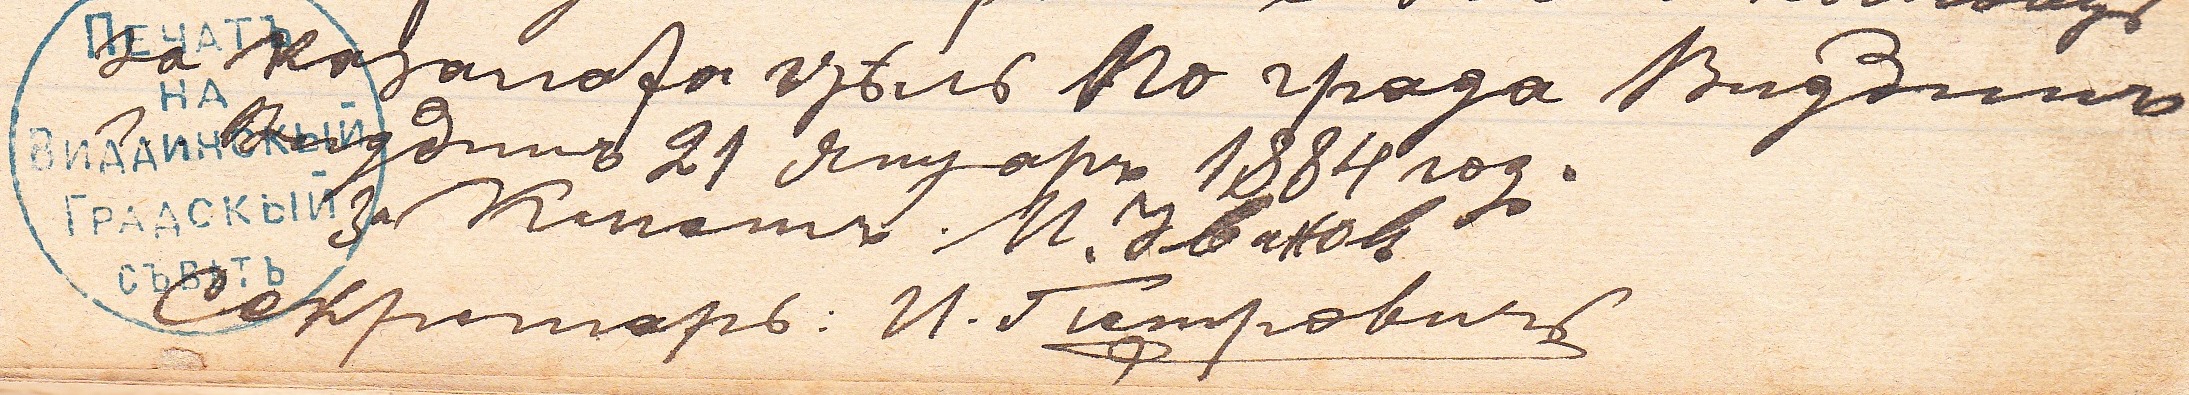 ПЕЧАТЪ
НА
ВИДДИНСКЫЙ
ГРАДСКЫЙ
СЪВѢТЪ
за казаната цѣль по града Виддинъ
г. Виддинъ 21 Януаръ 1884 год.
За Кметъ: И. Ивановъ
Секретарь: И. Петровичъ